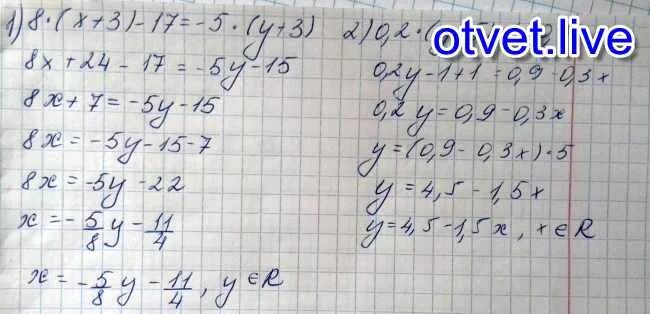 1) 8·(x+3)-17=-5·(y+3)
8x+24-17=-5y-15
8x+7=-5y-15
8x=-5y-15-7
8x=-5y-22
x=-5/8y-11/4
x=-5/8y-11/4, y∈R
2) 0,2·(
otvet.live
0,2y-1+1=0,9-0,3x
0,2y=0,9-0,3x
y=(0,9-0,3x)·5
y=4,5-1,5x
y=4,5-1,5x, x∈R